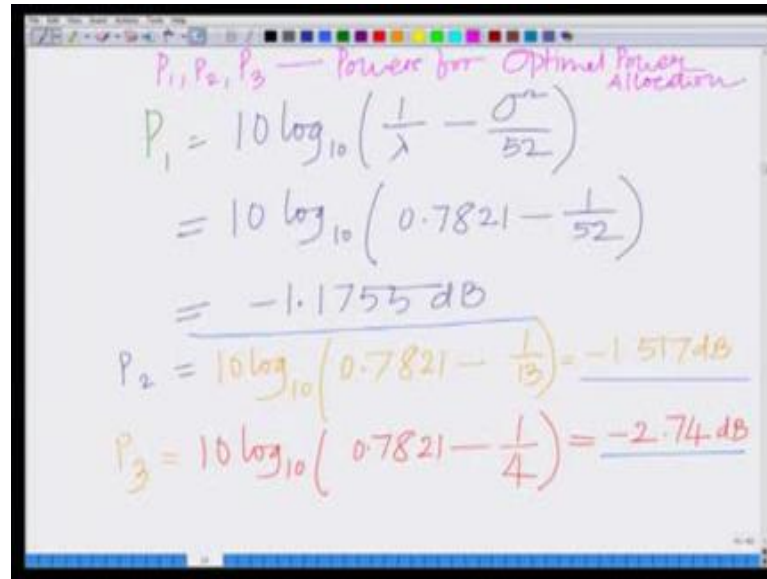 P₁, P₂, P₃ — Powers for Optimal Power Allocation
P₁ = 10 log₁₀ (1/λ − σ²/52)
= 10 log₁₀ (0.7821 − 1/52)
= −1.1755 dB
P₂ = 10 log₁₀ (0.7821 − 1/13) = −1.517 dB
P₃ = 10 log₁₀ (0.7821 − 1/4) = −2.74 dB